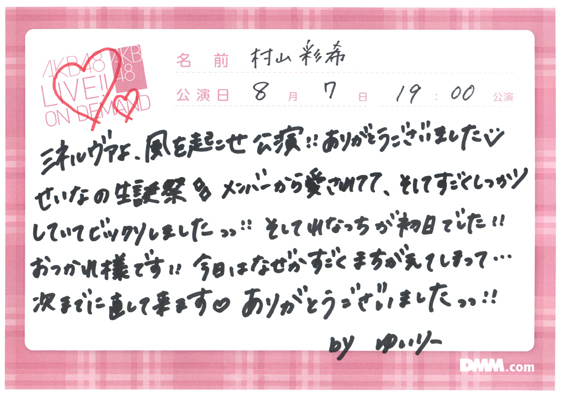 AKB48
LIVE!!
ON DEMAND
AKB
48
名前 村山彩希
公演日 8月7日 19:00公演
ミネルヴァよ、風を起こせ公演!! ありがとうございました♡
せいなの生誕祭 メンバーから愛されてて、そしてすごくしっかり
していてビックリしましたっっ!! そしてれなっちが初日でした!!
おつかれ様です!! 今日はなぜかすごくまちがえてしまって…
次までに直して来ます♡ ありがとうございましたっっ!!
by ゆいりー
DMM.com